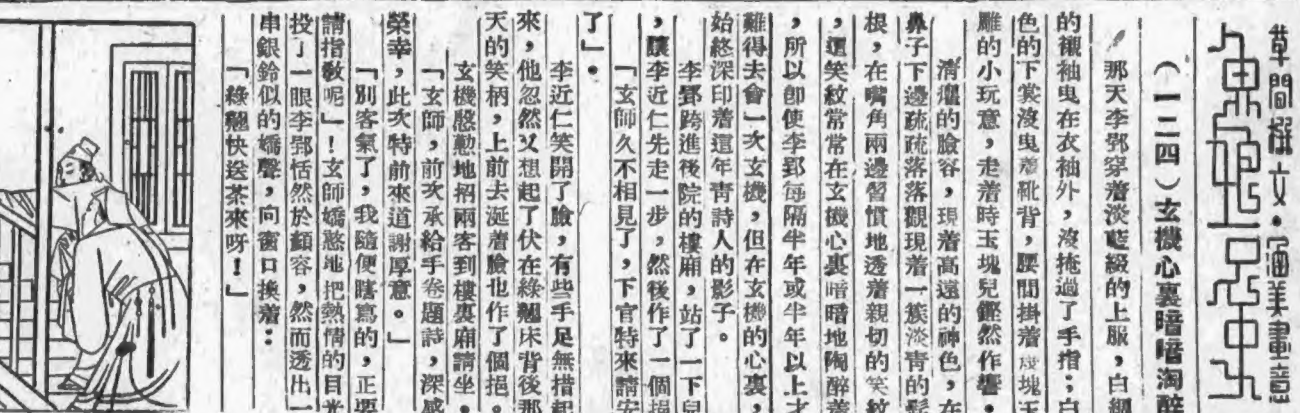 草間撰文·涵美畫意
（一二四）玄機心裏暗暗淘醉
那天李郢穿着淡藍綴的上服，白綢
的襯袖曳在衣袖外，沒掩過了手指；白
色的下裳沒曳着靴背，腰間掛着塊玉
雕的小玩意，走着時玉塊兒鏗然作響。
清癯的臉容，現着高遠的神色，在
鼻子下邊疏疏落落觀現着一簇淡青的髭
根，在嘴角兩邊習慣地透着親切的笑紋
，這笑紋常常在玄機心裏暗暗地陶醉着
，所以卽使李郢每隔半年或半年以上才
難得去會一次玄機，但在玄機的心裏，
始終深印着這年青詩人的影子。
李郢跨進後院的樓廂，站了一下兒
，讓李近仁先走一步，然後作了一個揖
「玄師久不相見了，下官特來請安
了」。
李近仁笑開了臉，有些手足無措起
來，他忽然又想起了伏在綠翹床背後那
天的笑柄，上前去涎着臉也作了個揖。
玄機慇懃地招兩客到樓裏廂請坐。
「玄師，前次承給手卷題詩，深感
榮幸，此次特前來道謝厚意。」
「別客氣了，我隨便瞎寫的，正要
請指敎呢」！玄師嬌憨地把熱情的目光
投了一眼李郢恬然於顏容，然而透出一
串銀鈴似的嬌聲，向窗口換着：
「綠翹快送茶來呀！」